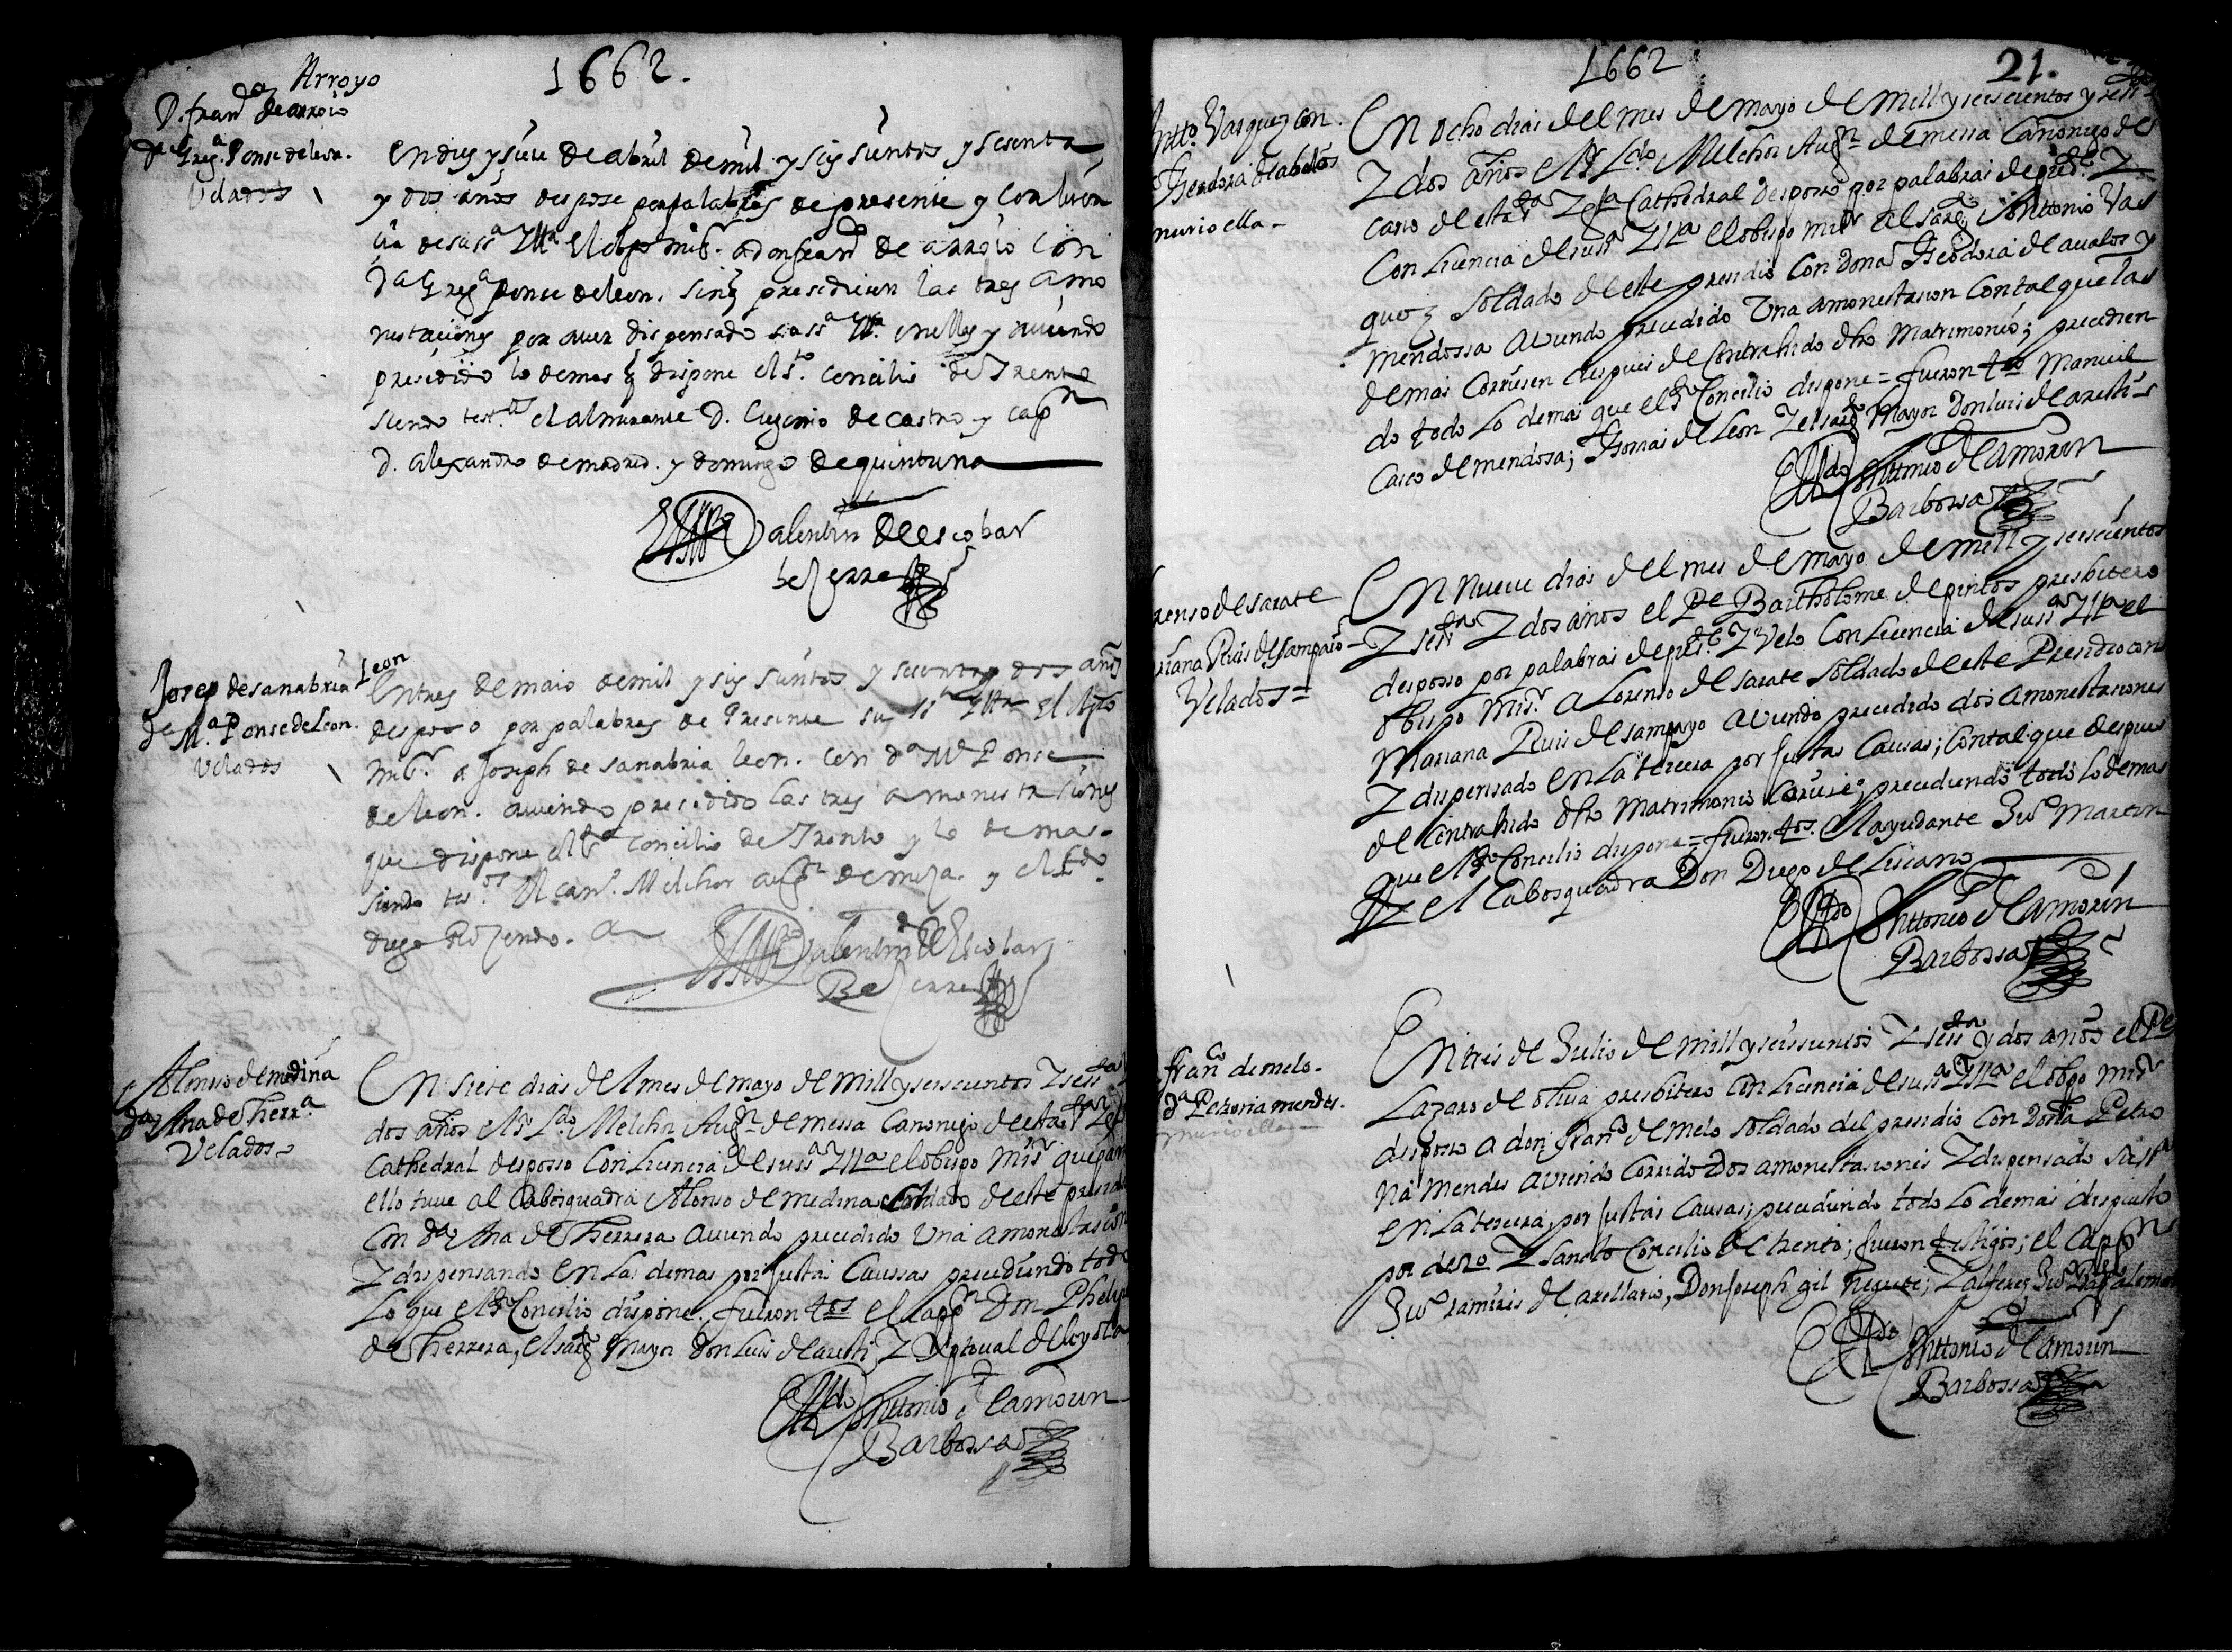 1662.
Arroyo
D. fran.co de arroio
D.a Greg.a Ponse de leon.
Velados
en dies y siete de abril de mil y seis sientos y sesenta
y dos años despose por palabras de presente y con lisen
sia de su ss.a Ill.a el obpo mi s.r a don fran.co de arroio con
D.a Greg.a ponse de leon. sin q presediesen las tres amo
nestaciones por aver dispensado su ss.a Ill.a en ellas y aviendo
presedido lo demas q dispone el s.to consilio de Trento
siendo test.os el almirante D. Eugenio de Castro y cap.n
D. alexandro de madrid. y domingo de quintana
Valentin de escobar
bezerra
Josep de sanabria Leon
D.a M.a Ponse de Leon.
Velados
En tres de maio de mil y seis sientos y sesenta y dos años
desposo por palabras de Presente su ss.a Ill.a el obpo
mi s.r a Joseph de sanabria leon. con D.a M.a Ponse
de leon. aviendo presedido las tres amonestasiones
que dispone el s.to consilio de Trento y lo demas
siendo tes.os el can.o Melchor aug.n de meza. y el L.do
diego Rozendo.
Valentin de Escobar
Bezerra
Alonso de medina
D.a Ana de Herr.a
Velados
En siete dias del mes de mayo de mill y seiscientos Z sess.ta Z
dos años el s.r L.do Melchor Aug.n de messa Canonigo de esta s.ta Ygl.a
Cathedral desposso Con Licencia de su ss.a Ill.a el obispo mi s.r que para
ello tuve al Cabo squadra Alonso de medina soldado de este presidio
Con D.a Ana de Herrera aviendo precedido Una amonestasion
Z dispensando en las demas por justas Caussas precediendo todo
Lo que el s.to Concilio dispone. fueron t.os el cap.n Don Phelipe
de Herrera, el sarg.to mayor Don Luis de aresti Z Xptoval de loyola
L.do Anttonio d Camorin
Barbossa
1662
21.
Antt.o Vasquez con
D.a Theodora de abalos
murio ella -
En ocho dias del mes de mayo de mill y seiscientos y sess.ta
Z dos años el s.r L.do Melchor Aug.n de messa Canonigo de
esta s.ta Ygl.a Cathedral desposso por palabras de pres.te Z
Con Licencia de su ss.a Ill.a el obispo mi s.r al sarg.to Anttonio Vas
quez soldado de este presidio Con Dona Theodora de avalos y
mendossa aviendo precedido Una amonestasion Con tal que las
demas Corriesen despues de Contrahido dho Matrimonio; precedien
do todo Lo demas que el s.to Concilio dispone = fueron t.os Manuel
Casco de mendosa; Thomas de Leon Z el sarg.to Mayor Don luis de aresti
L.do Anttonio d Camorin
Barbossa
Lorenso de sarate
Mariana Ruis de sampaio
Velados =
En nueve dias del mes de mayo de mill y seiscientos
Z sess.ta Z dos años el P.e Bartholome de pintos presbitero
desposso por palabras de pres.te Z Velo Con Licencia de su ss.a Ill.a el
obispo Mi s.r a Lorenso de sarate soldado de este Presidio con
Mariana Ruis de sampayo aviendo precedido dos amonestasiones
Z dispensado en La tercera por justas Causas; Con tal que despues
de Contrahido dho Matrimonio Corriese; precediendo todo lo demas
que el s.to Concilio dispone = fueron t.os el ayudante Ju.o Martin
Z el Cabo squadra Don Diego de Liscano
L.do Anttonio d Camorin
Barbossa
fran.co de melo.
D.a Petronia mendes.
murio ella -
En tres de Julio de mill y seissientos Z sess.ta y dos años el P.e
Lazaro de olivia presbitero Con Licencia de su ss.a Ill.a el obpo mi s.r
desposso a don fran.co de melo soldado del presidio Con Doña Petro
na mendes aviendo Corrido Dos amonestasiones Z dispensado su ss.a
en La tercera, por justas Causas; precediendo todo Lo demas dispuesto
por el s.to Z sancto Concilio de trento; fueron testigos; el Cap.n
Ju.o ramires de arellano, Don Joseph gil negrete; Z alferez Ju.o
L.do Anttonio d Camorin
Barbossa